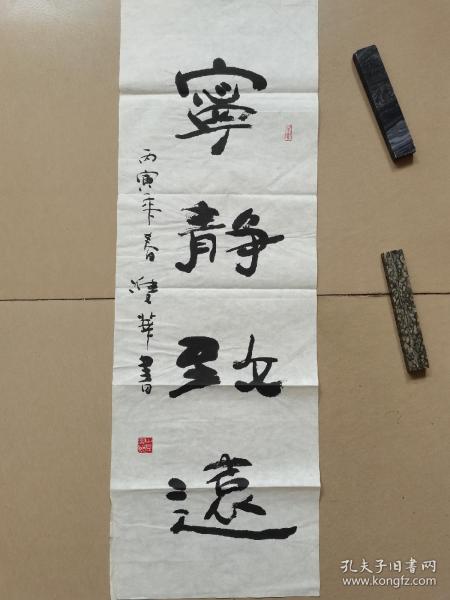 寧静致遠
丙寅年春
華書
孔夫子旧书网
www.kongfz.com